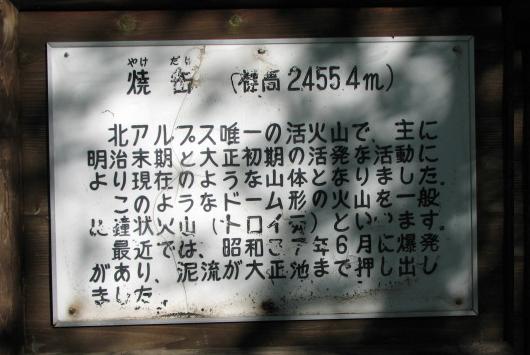 やけ だけ
焼岳 (標高 2455.4m)
北アルプス唯一の活火山で、主に
明治末期と大正初期の活発な活動に
より現在のような山体となりました。
このようなドーム形の火山を一般
に鐘状火山(トロイデ)といいます。
最近では、昭和37年6月に爆発
があり、泥流が大正池まで押し出し
ました。